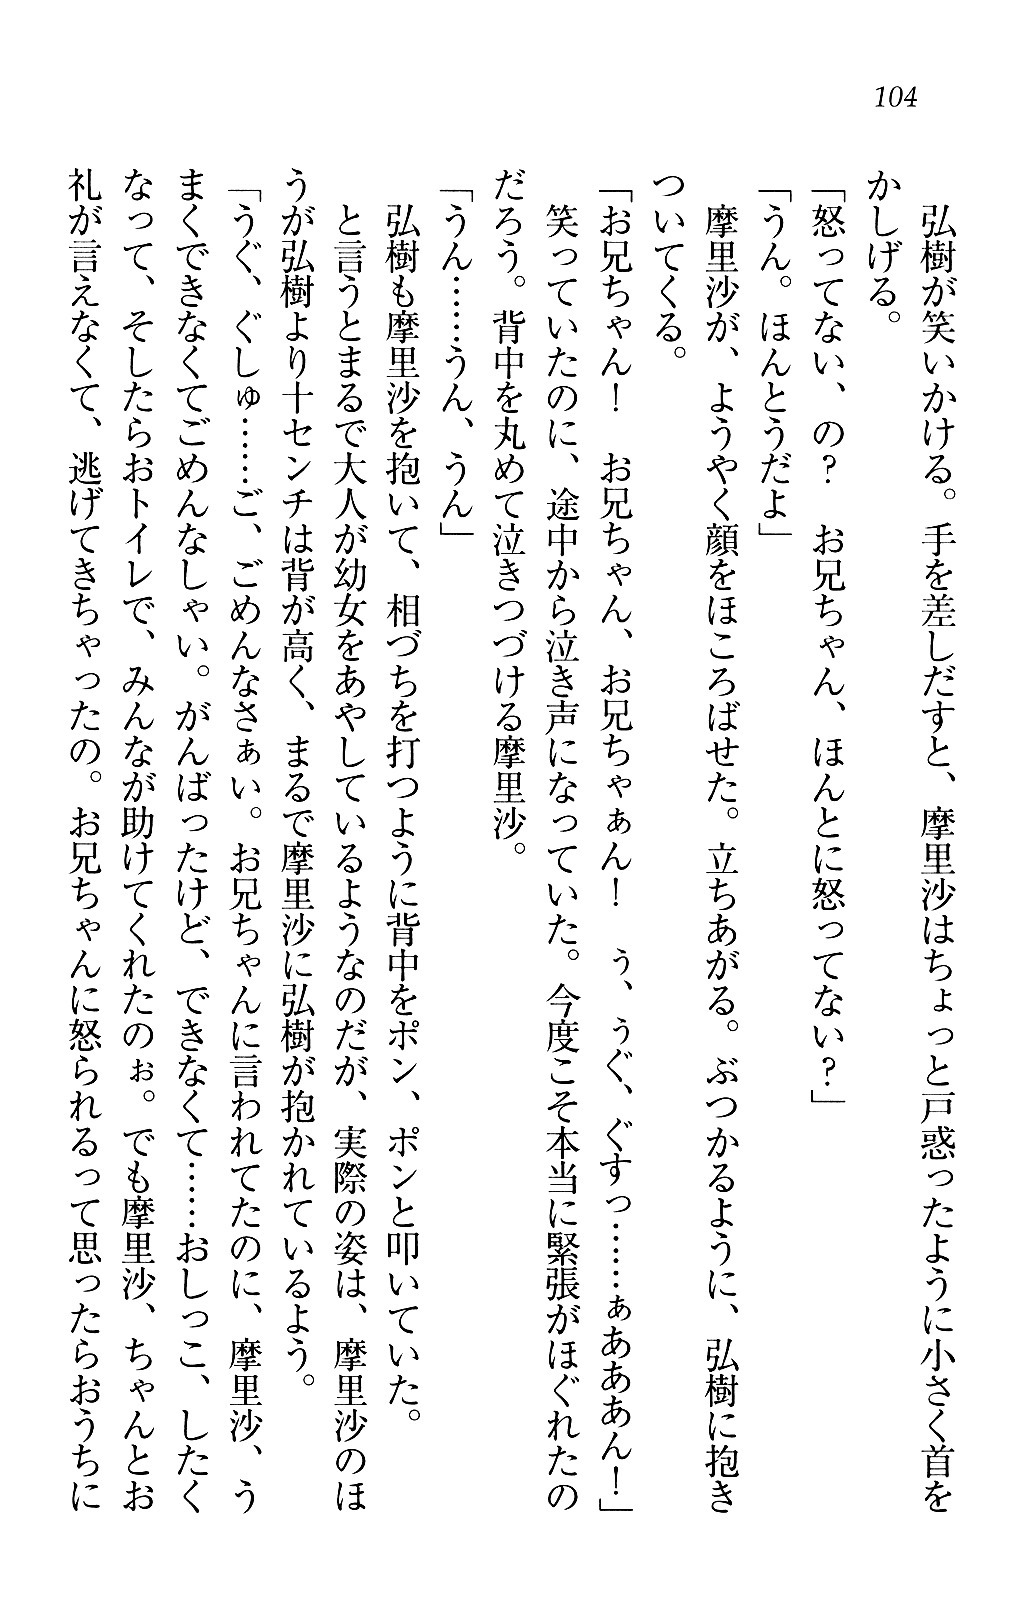 104
弘樹が笑いかける。手を差しだすと、摩里沙はちょっと戸惑ったように小さく首を
かしげる。
「怒ってない、の?　お兄ちゃん、ほんとに怒ってない?」
「うん。ほんとうだよ」
摩里沙が、ようやく顔をほころばせた。立ちあがる。ぶつかるように、弘樹に抱き
ついてくる。
「お兄ちゃん!　お兄ちゃん、お兄ちゃぁん!　ぅ、うぐ、ぐすっ……ぁあああん!」
笑っていたのに、途中から泣き声になっていた。今度こそ本当に緊張がほぐれたの
だろう。背中を丸めて泣きつづける摩里沙。
「うん……うん、うん」
弘樹も摩里沙を抱いて、相づちを打つように背中をポン、ポンと叩いていた。
と言うとまるで大人が幼女をあやしているようなのだが、実際の姿は、摩里沙のほ
うが弘樹より十センチは背が高く、まるで摩里沙に弘樹が抱かれているよう。
「うぐ、ぐしゅ……ご、ごめんなさぁい。お兄ちゃんに言われてたのに、摩里沙、う
まくできなくてごめんなしゃい。がんばったけど、できなくて……おしっこ、したく
なって、そしたらおトイレで、みんなが助けてくれたのぉ。でも摩里沙、ちゃんとお
礼が言えなくて、逃げてきちゃったの。お兄ちゃんに怒られるって思ったらおうちに